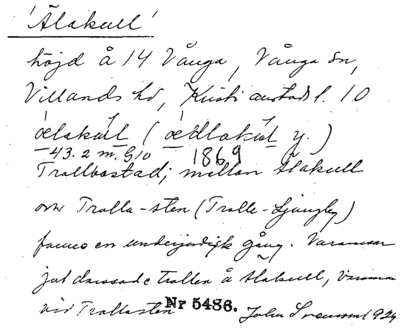 'Ålakull'
höjd å 14 Vånga, Vånga sn,
Villands hd, Kristianstads l. 10
ǽlakúl (ǽdlakúl y.)
- 43. 2 m. G10 1869
Trollbostad; mellan Ålakull
och Trolla-sten (Trolle-Ljungby)
fanns en underjordisk gång. Varannan
jul dansade trollen å Ålakull, varannan
vid Trollasten Nr 5486. John Svensson 1924